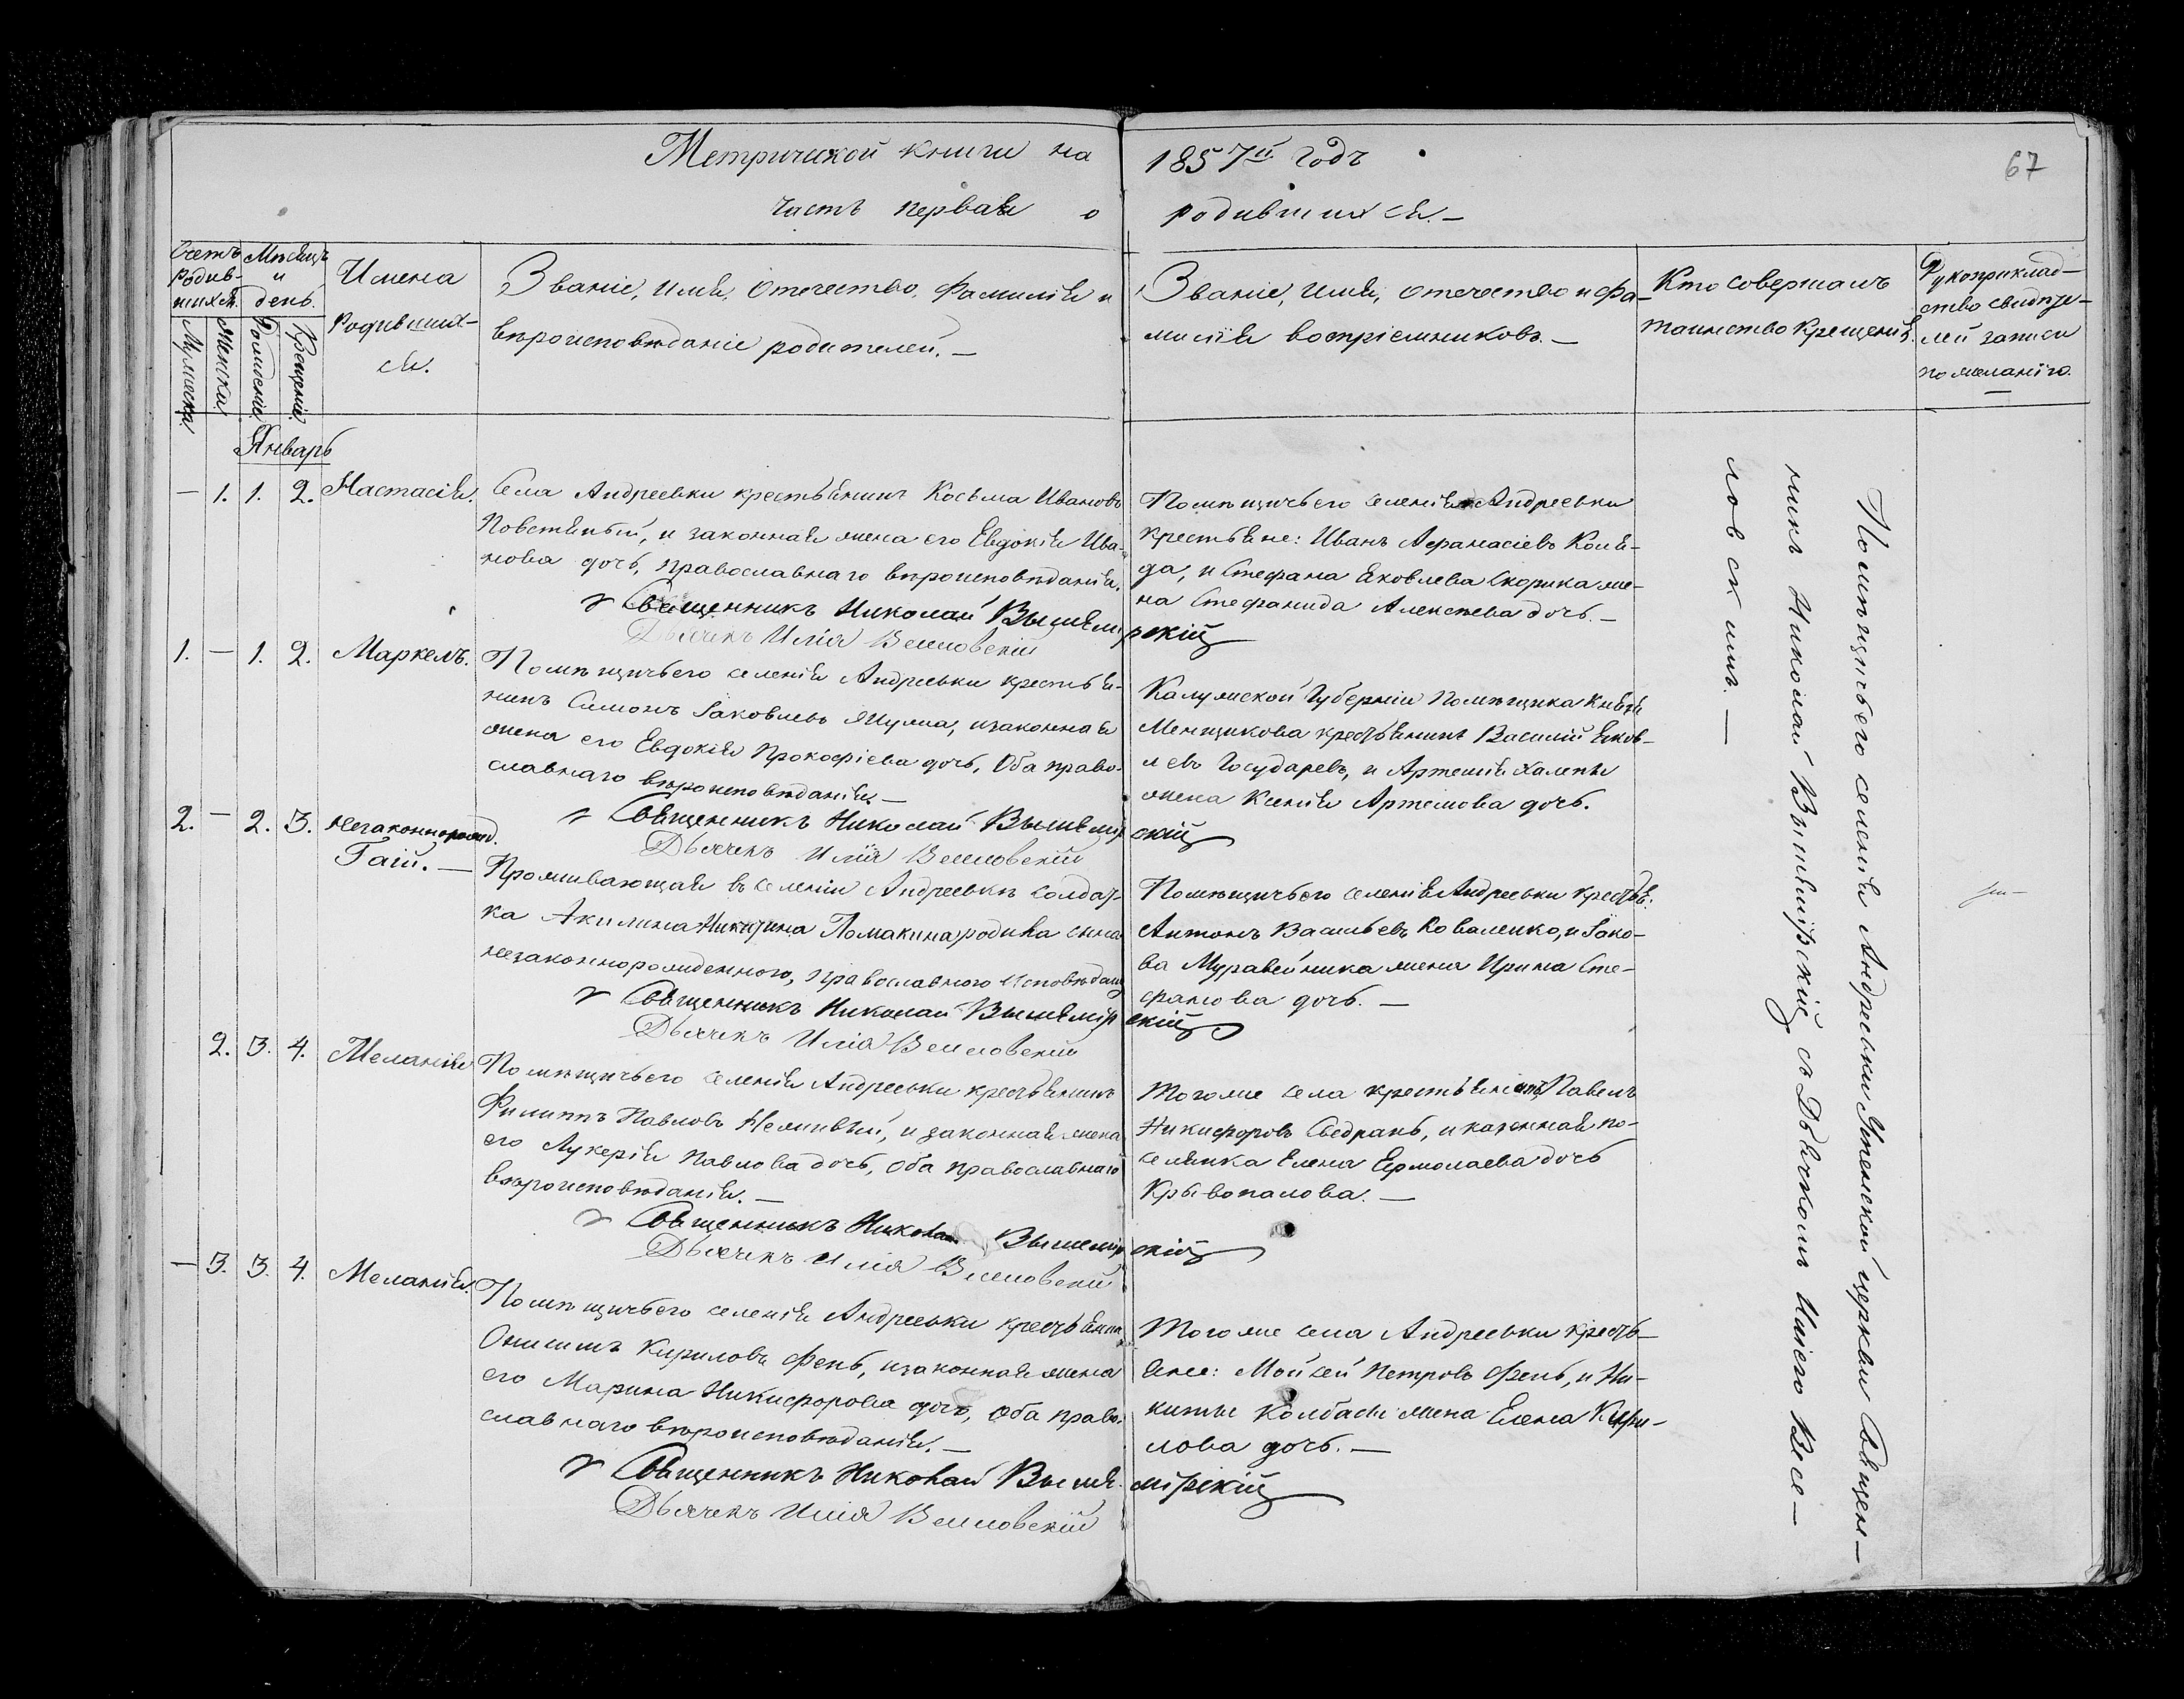 Метрической книги на 1857й годъ
67
часть первая о родившихся.—
Счетъ родив-
шихся.
Мужеска
Женска
Мѣсяцъ
и
день.
Рожденіе.
Крещеніе.
Имена
Родивших-
ся.
Званіе, Имя, Отечество, Фамилія и
вѣроисповѣданіе родителей.—
Званіе, имя, отечество и фа-
милія воспріемниковъ.—
Кто совершалъ
таинство Крещенія.
Рукоприклад-
ство свидѣте-
лей записи
по желанію.
Январь
— 1. 1. 2. Настасія.
Села Андреевки крестьянинъ Косьма Ивановъ
Повстяный, и законная жена его Евдокія Ива-
нова дочь, православнаго вѣроисповѣданія.
Священникъ Николай Вышемірскій
Дьячекъ Илія Веселовскій
Помѣщичьего селенія Андреевки
крестьяне: Иванъ Афанасіевъ Коля-
да, и Стефана Яковлева Скорика же-
на Стефанида Алексѣева дочь.—
1. — 1. 2. Маркелъ.
Помѣщичьего селенія Андреевки крестья-
нинъ Симонъ Іаковлевъ Якужа, и законная
жена его Евдокія Прокофіева дочь, Оба право-
славнаго вѣроисповѣданія.—
Священникъ Николай Вышемірскій
Дьячекъ Илія Веселовскій
Калужской Губерніи Помѣщика Князя
Менщикова крестьянинъ Василій Яков-
левъ Государевъ, и Артемія Халепы
жена Ксенія Артемова дочь.
2. — 2. 3. незаконнорожд.
Гаій.—
Проживающая въ селеніи Андреевкѣ солдат-
ка Акилина Никитина Ломакина родила сына
незаконнорожденного, православного исповѣдан
Священникъ Николай Вышемірскій
Дьячекъ Илія Веселовскій
Помѣщичьего селенія Андреевки крестья:
Антонъ Васильевъ Коваленко, и Іако-
ва Муравейника жена Ирина Сте-
фанова дочь.—
2. 3. 4. Меланія
Помѣщичьего селенія Андреевки крестьянинъ
Филиппъ Павловъ Нежывый, и законная жена
его Лукерія Павлова дочь, Оба православнаго
вѣроисповѣданія.—
Священникъ Николай Вышемірскій
Дьячекъ Илія Веселовскій
Тогоже села крестьянинъ Павелъ
Никифоровъ Свдрань, и казенная по-
селянка Елена Ермолаева дочь
Крывопалова.—
— 3. 3. 4. Меланія.
Помѣщичьего селенія Андреевки крестьянинъ
Онисимъ Кириловъ Фень, и законная жена
его Марина Никифорова дочь, Оба право-
славнаго вѣроисповѣданія.—
Священникъ Николай Вышемірскій
Дьячекъ Илія Веселовскій
Тогоже села Андреевки кресть-
яне: Мойсей Петровъ Фень, и Ни-
киты Колбасы жена Елена Кири-
лова дочь.—
Помѣщичьего селенія Андреевки Успенской церкви Священ-
никъ Николай Вышемірскій съ Дьячкомъ Иліею Весе-
ловскимъ.—